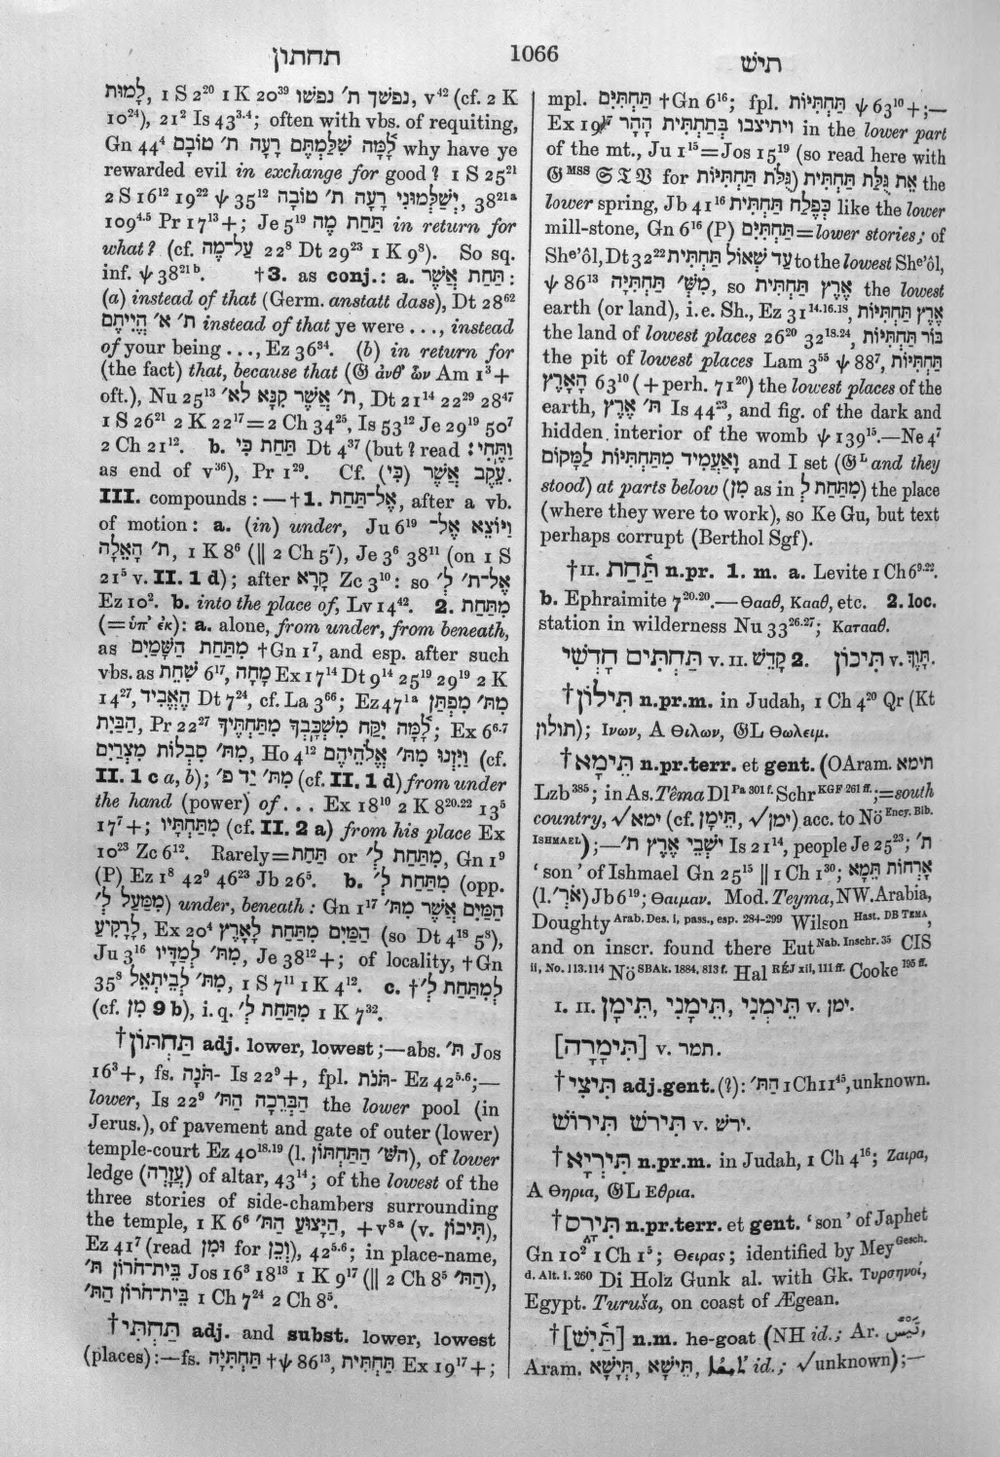 תחתון
1066
תיש
לָמוּת, 1 S 2²⁰ 1 K 20³⁹ נַפְשְׁךָ ת׳ נַפְשׁוֹ, v⁴² (cf. 2 K
10²⁴), 21² Is 43³·⁴; often with vbs. of requiting,
Gn 44⁴ לָמָּה שִׁלַּמְתֶּם רָעָה ת׳ טוֹבָם why have ye
rewarded evil in exchange for good? 1 S 25²¹
2 S 16¹² 19²² ψ 35¹² יְשַׁלְּמוּנִי רָעָה ת׳ טוֹבָה, 38²¹ᵃ
109⁴·⁵ Pr 17¹³+; Je 5¹⁹ תַּחַת מֶה in return for
what? (cf. עַל־מֶה 22⁸ Dt 29²³ 1 K 9⁸). So sq.
inf. ψ 38²¹ᵇ. †3. as conj.: a. תַּחַת אֲשֶׁר:
(a) instead of that (Germ. anstatt dass), Dt 28⁶²
ת׳ א׳ הֱיִיתֶם instead of that ye were ..., instead
of your being ..., Ez 36³⁴. (b) in return for
(the fact) that, because that (𝔊 ἀνθ᾽ ὧν Am 1³+
oft.), Nu 25¹³ ת׳ אֲשֶׁר קִנָּא לֵא׳, Dt 21¹⁴ 22²⁹ 28⁴⁷
1 S 26²¹ 2 K 22¹⁷=2 Ch 34²⁵, Is 53¹² Je 29¹⁹ 50⁷
2 Ch 21¹². b. תַּחַת כִּי Dt 4³⁷ (but ? read וַתְּחִי:
as end of v³⁶), Pr 1²⁹. Cf. עֵקֶב אֲשֶׁר (כִּי).
III. compounds:—†1. אֶל־תַּחַת, after a vb.
of motion: a. (in) under, Ju 6¹⁹ וַיּוֹצֵא אֶל־
ת׳ הָאֵלָה, 1 K 8⁶ (‖ 2 Ch 5⁷), Je 3⁶ 38¹¹ (on 1 S
21⁵ v. II. 1 d); after קָרָא Zc 3¹⁰: so אֶל־ת׳ לְ׳
Ez 10². b. into the place of, Lv 14⁴². 2. מִתַּחַת
(=ὑπ᾽ ἐκ): a. alone, from under, from beneath,
as מִתַּחַת הַשָּׁמַיִם †Gn 1⁷, and esp. after such
vbs. as שִׁחֵת 6¹⁷, מָחָה Ex 17¹⁴ Dt 9¹⁴ 25¹⁹ 29¹⁹ 2 K
14²⁷, הֶאֱבִיד Dt 7²⁴, cf. La 3⁶⁶; Ez 47¹ᵃ מִתּ׳ מִפְתַּן
הַבַּיִת, Pr 22²⁷ לָמָּה יִקַּח מִשְׁכָּבְךָ מִתַּחְתֶּיךָ; Ex 6⁶·⁷
מִתּ׳ סִבְלוֹת מִצְרַיִם, Ho 4¹² וַיִּזְנוּ מִתּ׳ אֱלֹהֵיהֶם (cf.
II. 1 c a, b); מִתּ׳ יַד פ׳ (cf. II. 1 d) from under
the hand (power) of... Ex 18¹⁰ 2 K 8²⁰·²² 13⁵
17⁷+; מִתַּחְתָּיו (cf. II. 2 a) from his place Ex
10²³ Zc 6¹². Rarely=תַּחַת or מִתַּחַת לְ׳, Gn 1⁹
(P) Ez 1⁸ 42⁹ 46²³ Jb 26⁵. b. מִתַּחַת לְ׳ (opp.
מִמַּעַל לְ׳) under, beneath: Gn 1¹⁷ הַמַּיִם אֲשֶׁר מִתּ׳
לָרָקִיעַ, Ex 20⁴ הַמַּיִם מִתַּחַת לָאָרֶץ (so Dt 4¹⁸ 5⁸),
Ju 3¹⁶ מִתּ׳ לְמַדָּיו, Je 38¹²+; of locality, †Gn
35⁸ מִתּ׳ לְבֵיתְאֵל, 1 S 7¹¹ 1 K 4¹². c. †לְמִתַּחַת לְ׳
(cf. מִן 9 b), i.q. מִתַּחַת לְ׳ 1 K 7³².
†תַּחְתּוֹן adj. lower, lowest;—abs. ת׳ Jos
16³+, fs. תֹּנָה- Is 22⁹+, fpl. תֹּנֹת- Ez 42⁵·⁶;—
lower, Is 22⁹ הַבְּרֵכָה הַתּ׳ the lower pool (in
Jerus.), of pavement and gate of outer (lower)
temple-court Ez 40¹⁸·¹⁹ (l. הַשּׁ׳ הַתַּחְתּוֹן), of lower
ledge (עֲזָרָה) of altar, 43¹⁴; of the lowest of the
three stories of side-chambers surrounding
the temple, 1 K 6⁶ הַיָּצוּעַ הַתּ׳, +v⁸ᵃ (v. תִּיכוֹן),
Ez 41⁷ (read וּמִן for וְכֵן), 42⁵·⁶; in place-name,
בֵּית־חֹרוֹן תּ׳ Jos 16³ 18¹³ 1 K 9¹⁷ (‖ 2 Ch 8⁵ הַתּ׳),
בֵּית־חֹרוֹן הַתּ׳ 1 Ch 7²⁴ 2 Ch 8⁵.
†תַּחְתִּי adj. and subst. lower, lowest
(places):—fs. תַּחְתִּיָּה †ψ 86¹³, תַּחְתִּית Ex 19¹⁷+;
mpl. תַּחְתִּיִּם †Gn 6¹⁶; fpl. תַּחְתִּיּוֹת ψ 63¹⁰+;—
Ex 19¹⁷ ויתיצבו בְּתַחְתִּית הָהָר in the lower part
of the mt., Ju 1¹⁵=Jos 15¹⁹ (so read here with
𝔊 ᴹˢˢ 𝔖 𝔗 𝔙 for גֻּלֹּת תַּחְתִּיּוֹת) אֵת גֻּלַּת תַּחְתִּית the
lower spring, Jb 41¹⁶ כְּפֶלַח תַּחְתִּית like the lower
mill-stone, Gn 6¹⁶ (P) תַּחְתִּיִּם=lower stories; of
Sheʾôl, Dt 32²² עַד שְׁאוֹל תַּחְתִּית to the lowest Sheʾôl,
ψ 86¹³ מִשּׁ׳ תַּחְתִּיָּה, so אֶרֶץ תַּחְתִּית the lowest
earth (or land), i.e. Sh., Ez 31¹⁴·¹⁶·¹⁸, אֶרֶץ תַּחְתִּיּוֹת
the land of lowest places 26²⁰ 32¹⁸·²⁴, בּוֹר תַּחְתִּיּוֹת
the pit of lowest places Lam 3⁵⁵ ψ 88⁷, תַּחְתִּיּוֹת
הָאָרֶץ 63¹⁰ (+perh. 71²⁰) the lowest places of the
earth, תּ׳ אָרֶץ Is 44²³, and fig. of the dark and
hidden interior of the womb ψ 139¹⁵.—Ne 4⁷
וָאַעֲמִיד מִתַּחְתִּיּוֹת לַמָּקוֹם and I set (𝔊ᴸ and they
stood) at parts below (מִן as in מִתַּחַת לְ) the place
(where they were to work), so Ke Gu, but text
perhaps corrupt (Berthol Sgf).
†II. תַּחַת n.pr. 1. m. a. Levite 1 Ch 6⁹·²².
b. Ephraimite 7²⁰·²⁰.—Θααθ, Κααθ, etc. 2. loc.
station in wilderness Nu 33²⁶·²⁷; Καтααθ.
תַּחְתִּים חָדְשִׁי v. II. קָדֵשׁ 2. תִּיכוֹן v. תָּוֶךְ.
†תִּילוֹן n.pr.m. in Judah, 1 Ch 4²⁰ Qr (Kt
תולון); Ινων, A Θιλων, 𝔊L Θωλειμ.
†תֵּימָא n.pr.terr. et gent. (OAram. תימא
Lzb³⁸⁵; in As. Têma Dl ᴾᵃ ³⁰¹ ᶠ· Schr ᴷᴳᶠ ²⁶¹ ᶠᶠ·;=south
country, √ימא (cf. תֵּימָן, √ימן) acc. to Nö Ency. Bib.
ISHMAEL);—ת׳ יֹשְׁבֵי אֶרֶץ Is 21¹⁴, people Je 25²³; ת׳
‘son’ of Ishmael Gn 25¹⁵ ‖ 1 Ch 1³⁰; אָרְחוֹת תֵּמָא
(l. אֹר׳) Jb 6¹⁹; Θαιμαν. Mod. Teyma, NW. Arabia,
Doughty Arab. Des. i, pass., esp. 284–299 Wilson Hast. DB TEMA,
and on inscr. found there Eut Nab. Inschr. 35 CIS
ii, No. 113.114 Nö SBAk. 1884, 813 f. Hal RÉJ xii, 111 ff. Cooke 195 ff.
I. II. תֵּימָן, תֵּימָנִי, תֵּימְנִי v. ימן.
[תִּימָרָה] v. תמר.
†תִּיצִי adj.gent.(?): הַתּ׳ 1 Ch 11⁴⁵, unknown.
תִּירוֹשׁ תִּירשׁ v. ירשׁ.
†תִּירְיָא n.pr.m. in Judah, 1 Ch 4¹⁶; Ζαιρα,
A Θηρια, 𝔊L Εθρια.
†תִּירָס n.pr.terr. et gent. ‘son’ of Japhet
Gn 10² 1 Ch 1⁵; Θειρας; identified by Mey Gesch.
d. Alt. i. 260 Di Holz Gunk al. with Gk. Τυρσηνοί,
Egypt. Turuša, on coast of Ægean.
†[תַּיִשׁ] n.m. he-goat (NH id.; Ar. تَيْسٌ,
Aram. תְּיָשָׁא, תֵּישָׁא, id.; √unknown);—